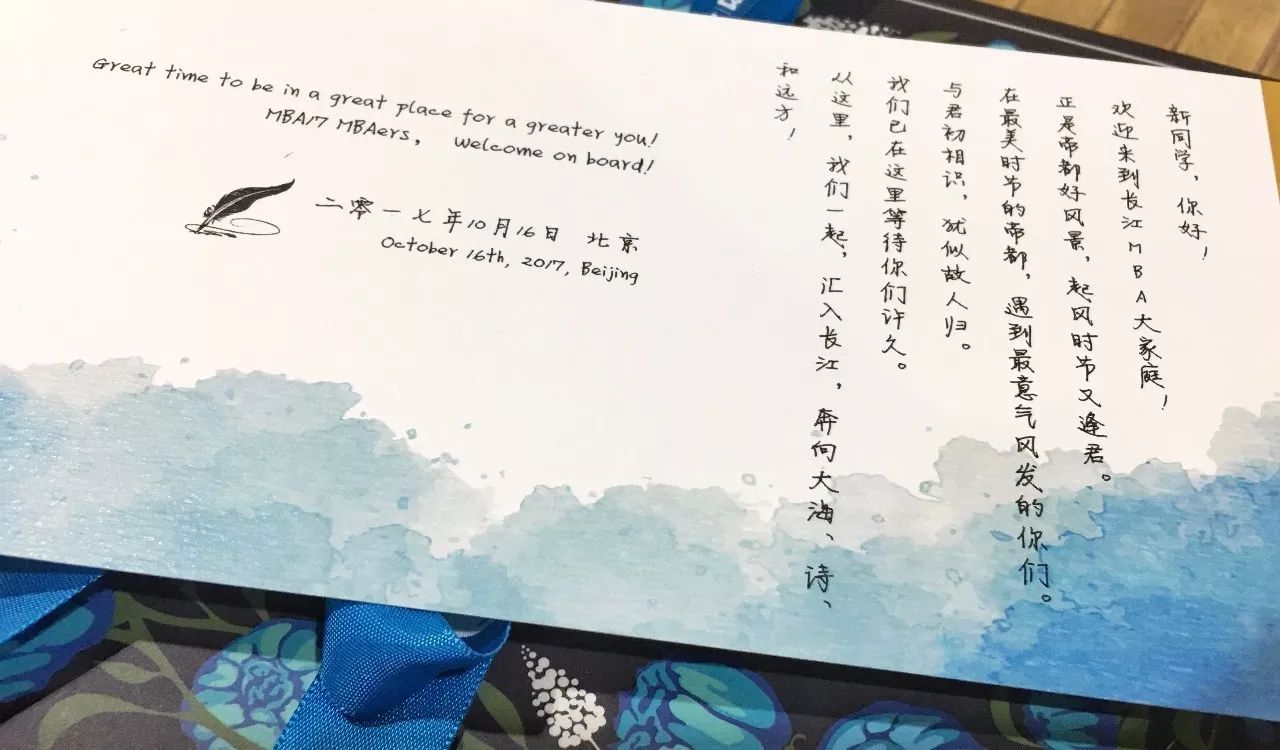 新同学，你好！
欢迎来到长江MBA大家庭！
正是帝都好风景，起风时节又逢君。
在最美时节的帝都，遇到最意气风发的你们。
与君初相识，犹似故人归。
我们已在这里等待你们许久。
从这里，我们一起，汇入长江，奔向大海、诗、
和远方！
Great time to be in a great place for a greater you!
MBA17 MBAers, welcome on board!
二零一七年10月16日 北京
October 16th, 2017, Beijing